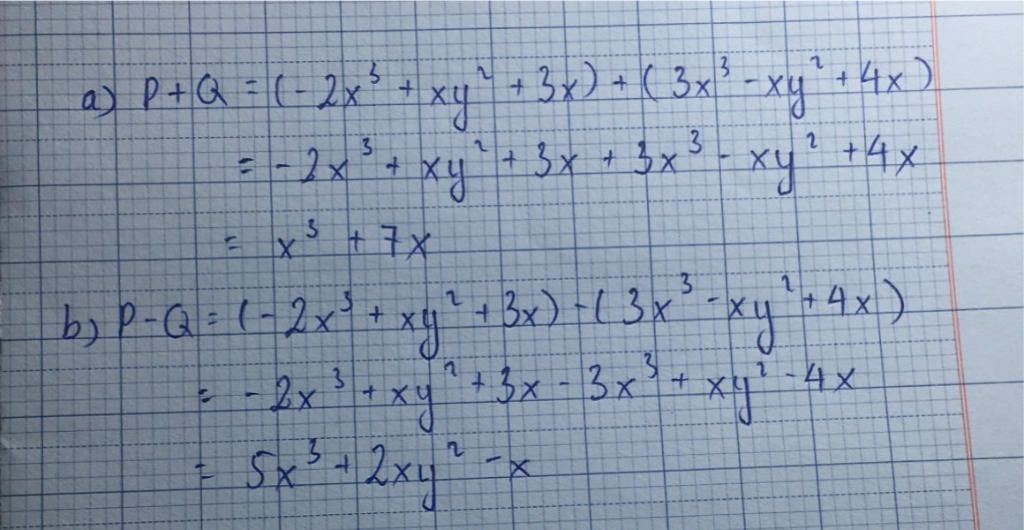 a) P+Q = (-2x³ + xy² + 3x) + (3x³ - xy² + 4x)
= -2x³ + xy² + 3x + 3x³ - xy² + 4x
= x³ + 7x
b) P-Q = (-2x³ + xy² + 3x) - (3x³ - xy² + 4x)
= -2x³ + xy² + 3x - 3x³ + xy² - 4x
= 5x³ + 2xy² - x